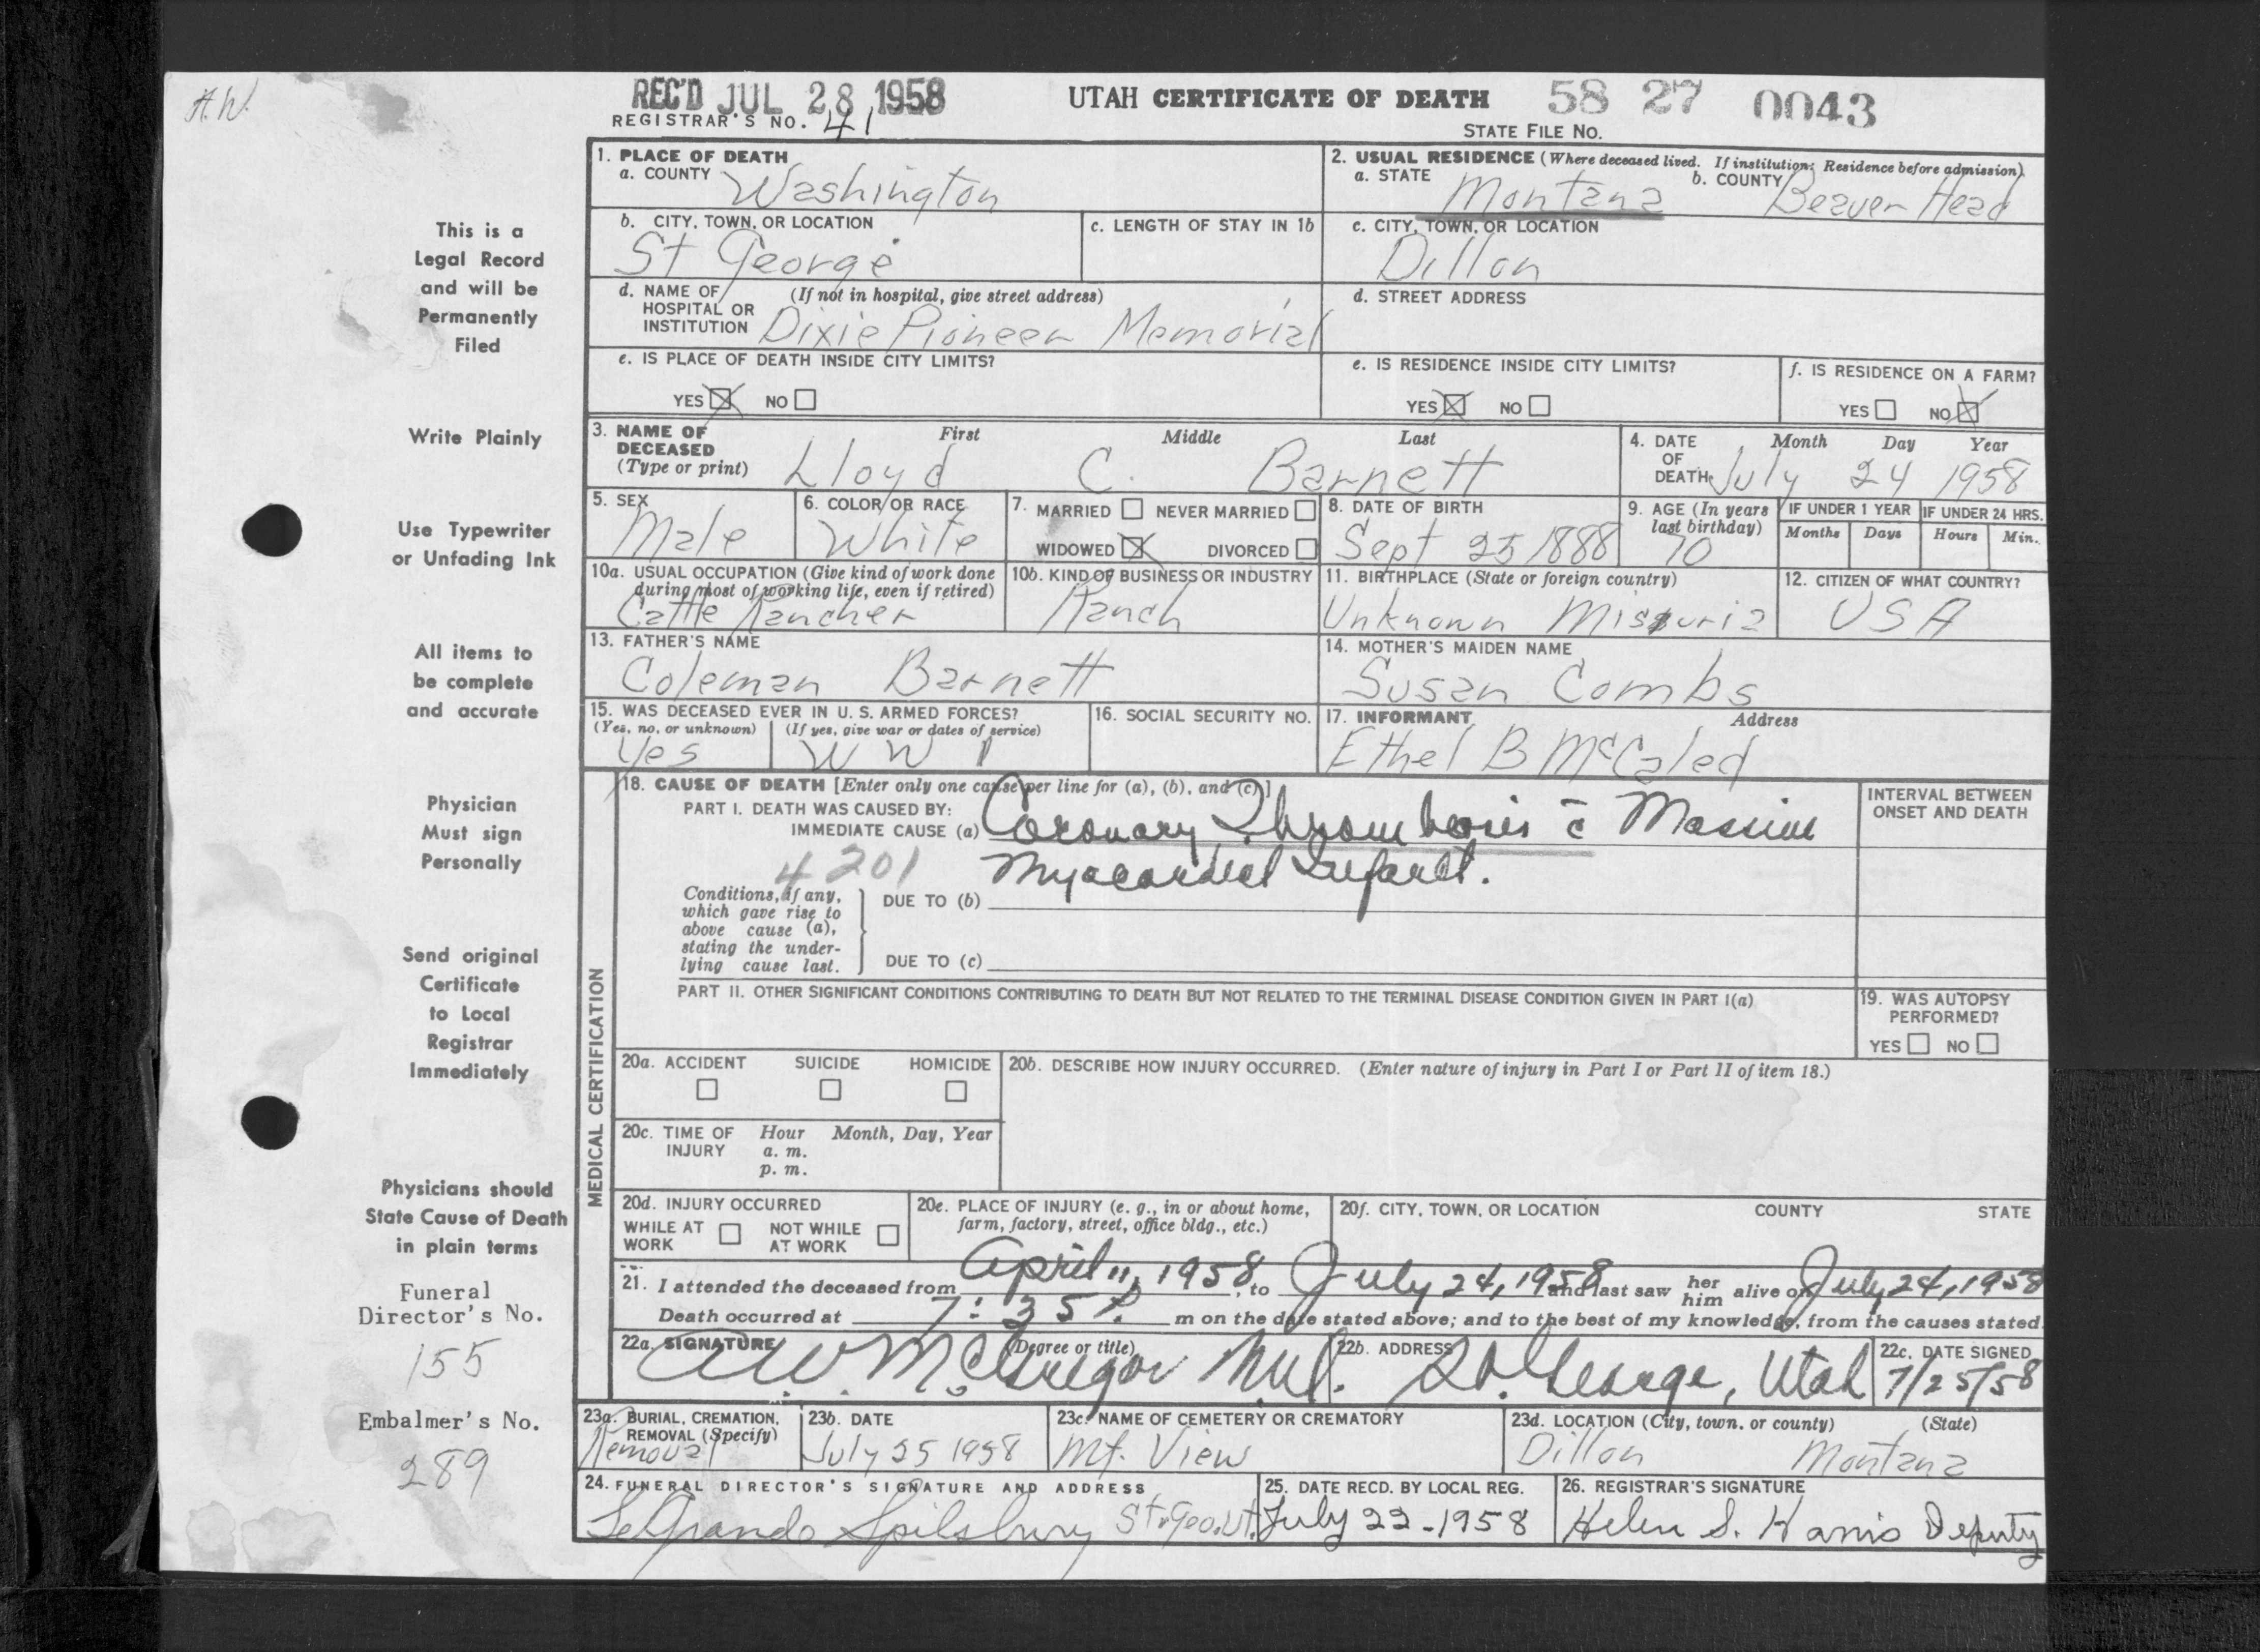 A.W.
REC'D JUL 28 1958 UTAH CERTIFICATE OF DEATH 58 27 0043
REGISTRAR'S NO. 41 STATE FILE No.
This is a
Legal Record
and will be
Permanently
Filed
Write Plainly
Use Typewriter
or Unfading Ink
All items to
be complete
and accurate
Physician
Must sign
Personally
Send original
Certificate
to Local
Registrar
Immediately
Physicians should
State Cause of Death
in plain terms
Funeral
Director's No.
155
Embalmer's No.
289
1. PLACE OF DEATH
a. COUNTY Washington
2. USUAL RESIDENCE (Where deceased lived. If institution: Residence before admission)
a. STATE Montana b. COUNTY Beaver Head
b. CITY, TOWN, OR LOCATION
St George
c. LENGTH OF STAY IN 1b
c. CITY, TOWN, OR LOCATION
Dillon
d. NAME OF (If not in hospital, give street address)
HOSPITAL OR
INSTITUTION Dixie Pioneer Memorial
d. STREET ADDRESS
e. IS PLACE OF DEATH INSIDE CITY LIMITS?
YES ☒ NO ☐
e. IS RESIDENCE INSIDE CITY LIMITS?
YES ☒ NO ☐
f. IS RESIDENCE ON A FARM?
YES ☐ NO ☒
3. NAME OF First Middle Last
DECEASED
(Type or print) Lloyd C. Barnett
4. DATE Month Day Year
OF
DEATH July 24 1958
5. SEX
Male
6. COLOR OR RACE
White
7. MARRIED ☐ NEVER MARRIED ☐
WIDOWED ☒ DIVORCED ☐
8. DATE OF BIRTH
Sept 25 1888
9. AGE (In years
last birthday)
70
IF UNDER 1 YEAR
Months Days
IF UNDER 24 HRS.
Hours Min.
10a. USUAL OCCUPATION (Give kind of work done
during most of working life, even if retired)
Cattle Rancher
10b. KIND OF BUSINESS OR INDUSTRY
Ranch
11. BIRTHPLACE (State or foreign country)
Unknown Missuria
12. CITIZEN OF WHAT COUNTRY?
USA
13. FATHER'S NAME
Coleman Barnett
14. MOTHER'S MAIDEN NAME
Susan Combs
15. WAS DECEASED EVER IN U. S. ARMED FORCES?
(Yes, no, or unknown) (If yes, give war or dates of service)
Yes W W I
16. SOCIAL SECURITY NO.
17. INFORMANT Address
Ethel B McCaled
MEDICAL CERTIFICATION
18. CAUSE OF DEATH [Enter only one cause per line for (a), (b), and (c)]
PART I. DEATH WAS CAUSED BY:
IMMEDIATE CAUSE (a) Coronary Thrombosis c̄ Massive
4201 Myocardial Infarct.
Conditions, if any,
which gave rise to
above cause (a),
stating the under-
lying cause last.
DUE TO (b)
DUE TO (c)
INTERVAL BETWEEN
ONSET AND DEATH
PART II. OTHER SIGNIFICANT CONDITIONS CONTRIBUTING TO DEATH BUT NOT RELATED TO THE TERMINAL DISEASE CONDITION GIVEN IN PART I(a)
19. WAS AUTOPSY
PERFORMED?
YES ☐ NO ☐
20a. ACCIDENT SUICIDE HOMICIDE
☐ ☐ ☐
20b. DESCRIBE HOW INJURY OCCURRED. (Enter nature of injury in Part I or Part II of item 18.)
20c. TIME OF Hour Month, Day, Year
INJURY a. m.
p. m.
20d. INJURY OCCURRED
WHILE AT ☐ NOT WHILE ☐
WORK AT WORK
20e. PLACE OF INJURY (e. g., in or about home,
farm, factory, street, office bldg., etc.)
20f. CITY, TOWN, OR LOCATION COUNTY STATE
21. I attended the deceased from April 11, 1958, to July 24, 1958 and last saw her him alive on July 24, 1958
Death occurred at 7:35 P. m on the date stated above; and to the best of my knowledge, from the causes stated.
22a. SIGNATURE (Degree or title)
A W. McGregor M.D.
22b. ADDRESS
St. George, Utah
22c. DATE SIGNED
7/25/58
23a. BURIAL, CREMATION,
REMOVAL (Specify)
Removal
23b. DATE
July 25 1958
23c. NAME OF CEMETERY OR CREMATORY
Mt. View
23d. LOCATION (City, town, or county) (State)
Dillon Montana
24. FUNERAL DIRECTOR'S SIGNATURE AND ADDRESS
LeGrande Spilsbury St. Geo. Ut.
25. DATE RECD. BY LOCAL REG.
July 22-1958
26. REGISTRAR'S SIGNATURE
Helen S. Harris Deputy